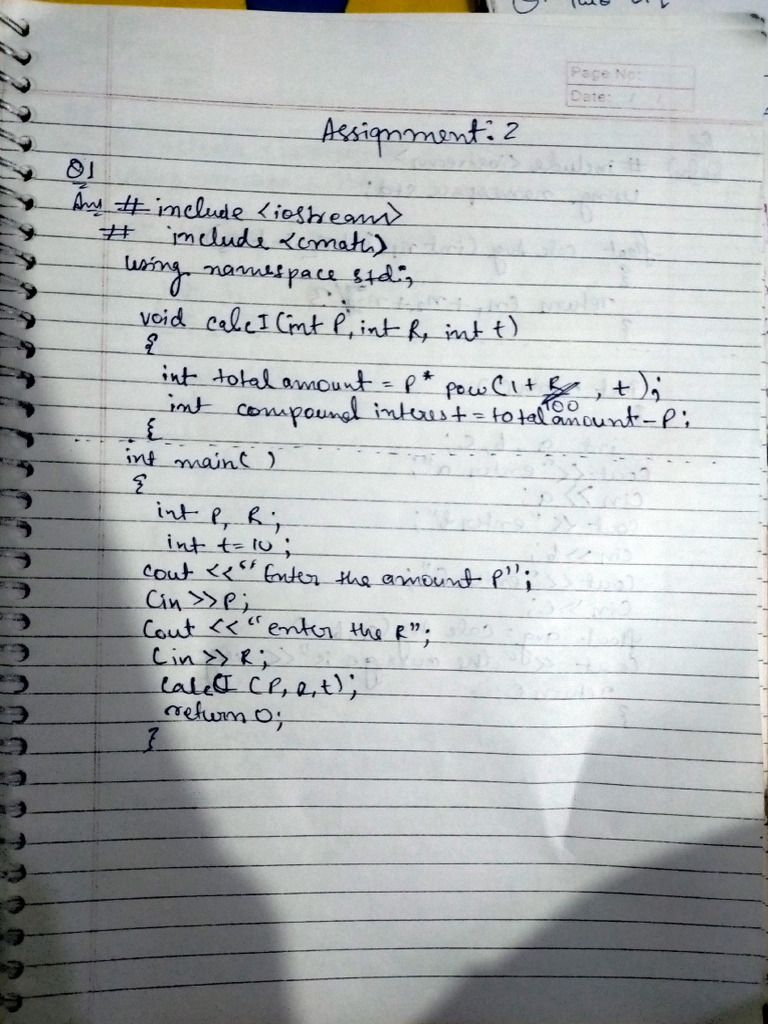 Page No:
Date: / /
Assignment: 2
Q1
Ans # include <iostream>
# include <cmath>
using namespace std;
void calcI (int P, int R, int t)
{
int total amount = P * pow (1 + R/100, t);
int compound interest = total amount - P;
{
int main( )
{
int P, R;
int t = 10;
cout << "Enter the amount P";
Cin >> P;
Cout << "enter the R";
Cin >> R;
CalcCI (P, R, t);
return 0;
}